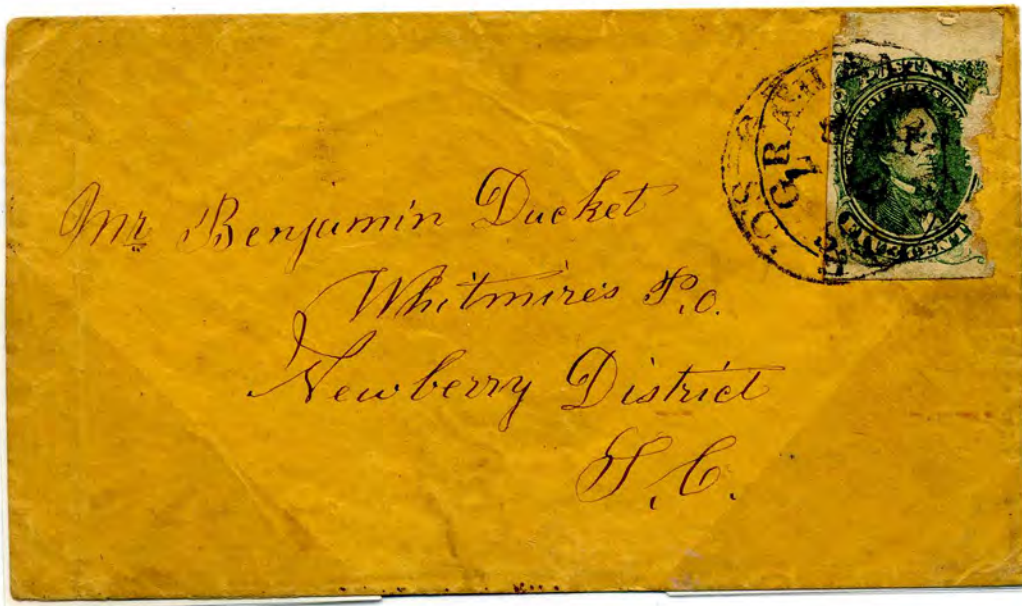 Mr Benjamin Ducket
Whitmires P.O.
Newberry District
S.C.
FIVE CENTS